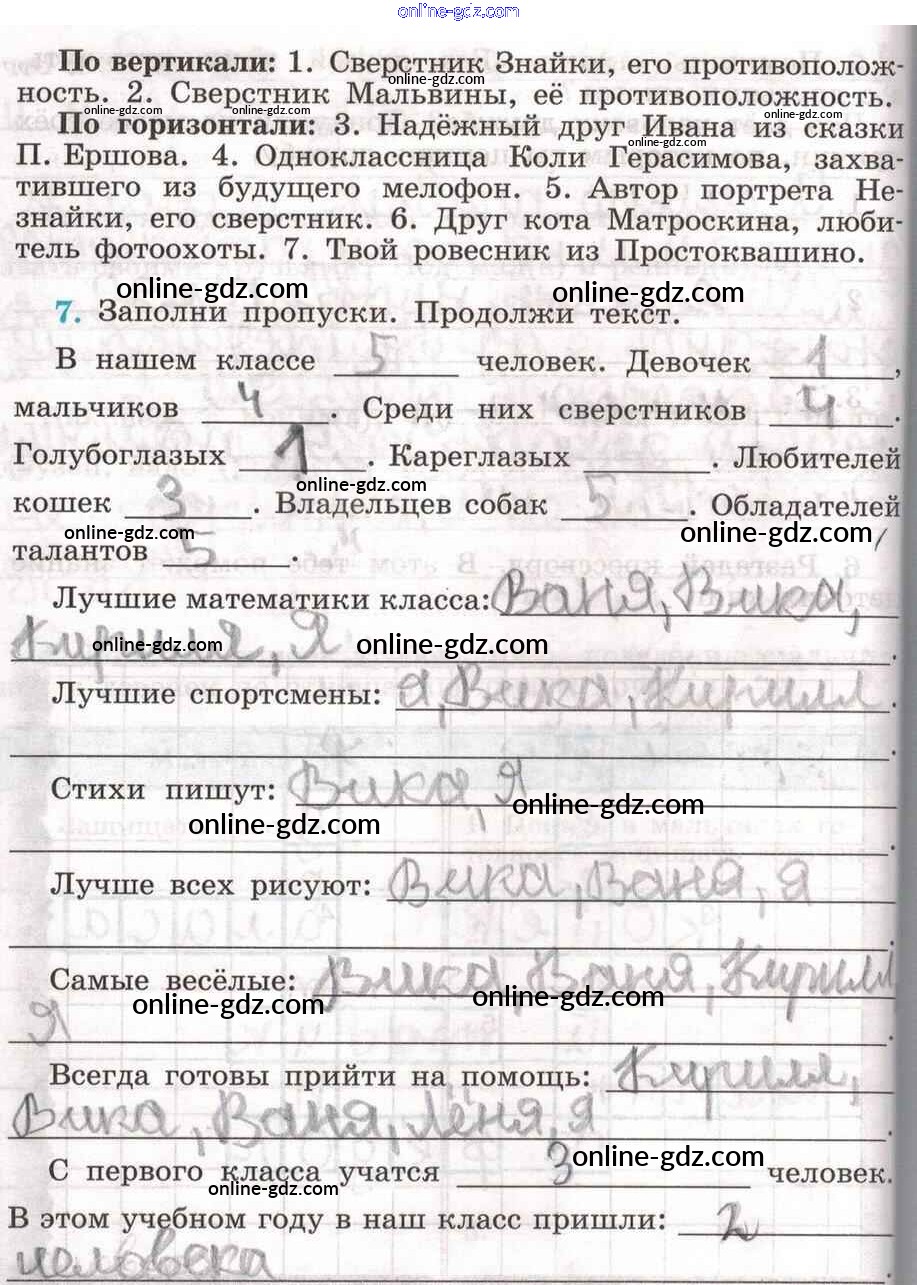 online-gdz.com
По вертикали: 1. Сверстник Знайки, его противополож-
online-gdz.com
ность. 2. Сверстник Мальвины, её противоположность.
online-gdz.com online-gdz.com online-gdz.com
По горизонтали: 3. Надёжный друг Ивана из сказки
online-gdz.com
П. Ершова. 4. Одноклассница Коли Герасимова, захва-
тившего из будущего мелофон. 5. Автор портрета Не-
знайки, его сверстник. 6. Друг кота Матроскина, люби-
тель фотоохоты. 7. Твой ровесник из Простоквашино.
online-gdz.com online-gdz.com
7. Заполни пропуски. Продолжи текст.
В нашем классе 5 человек. Девочек 1,
мальчиков 4. Среди них сверстников 4.
Голубоглазых 1. Кареглазых ____. Любителей
online-gdz.com
кошек 3. Владельцев собак 5. Обладателей
online-gdz.com online-gdz.com
талантов 5.
Лучшие математики класса: Ваня, Вика,
Кирилл, Я.
online-gdz.com online-gdz.com
Лучшие спортсмены: я, Вика, Кирилл.
Стихи пишут: Вика, Я
online-gdz.com
online-gdz.com
Лучше всех рисуют: Вика, Ваня, я
Самые весёлые: Вика, Ваня, Кирилл
online-gdz.com online-gdz.com
Я.
Всегда готовы прийти на помощь: Кирилл,
Вика, Ваня, Лёня, я.
online-gdz.com
С первого класса учатся 3 человек.
online-gdz.com
В этом учебном году в наш класс пришли: 2
человека.